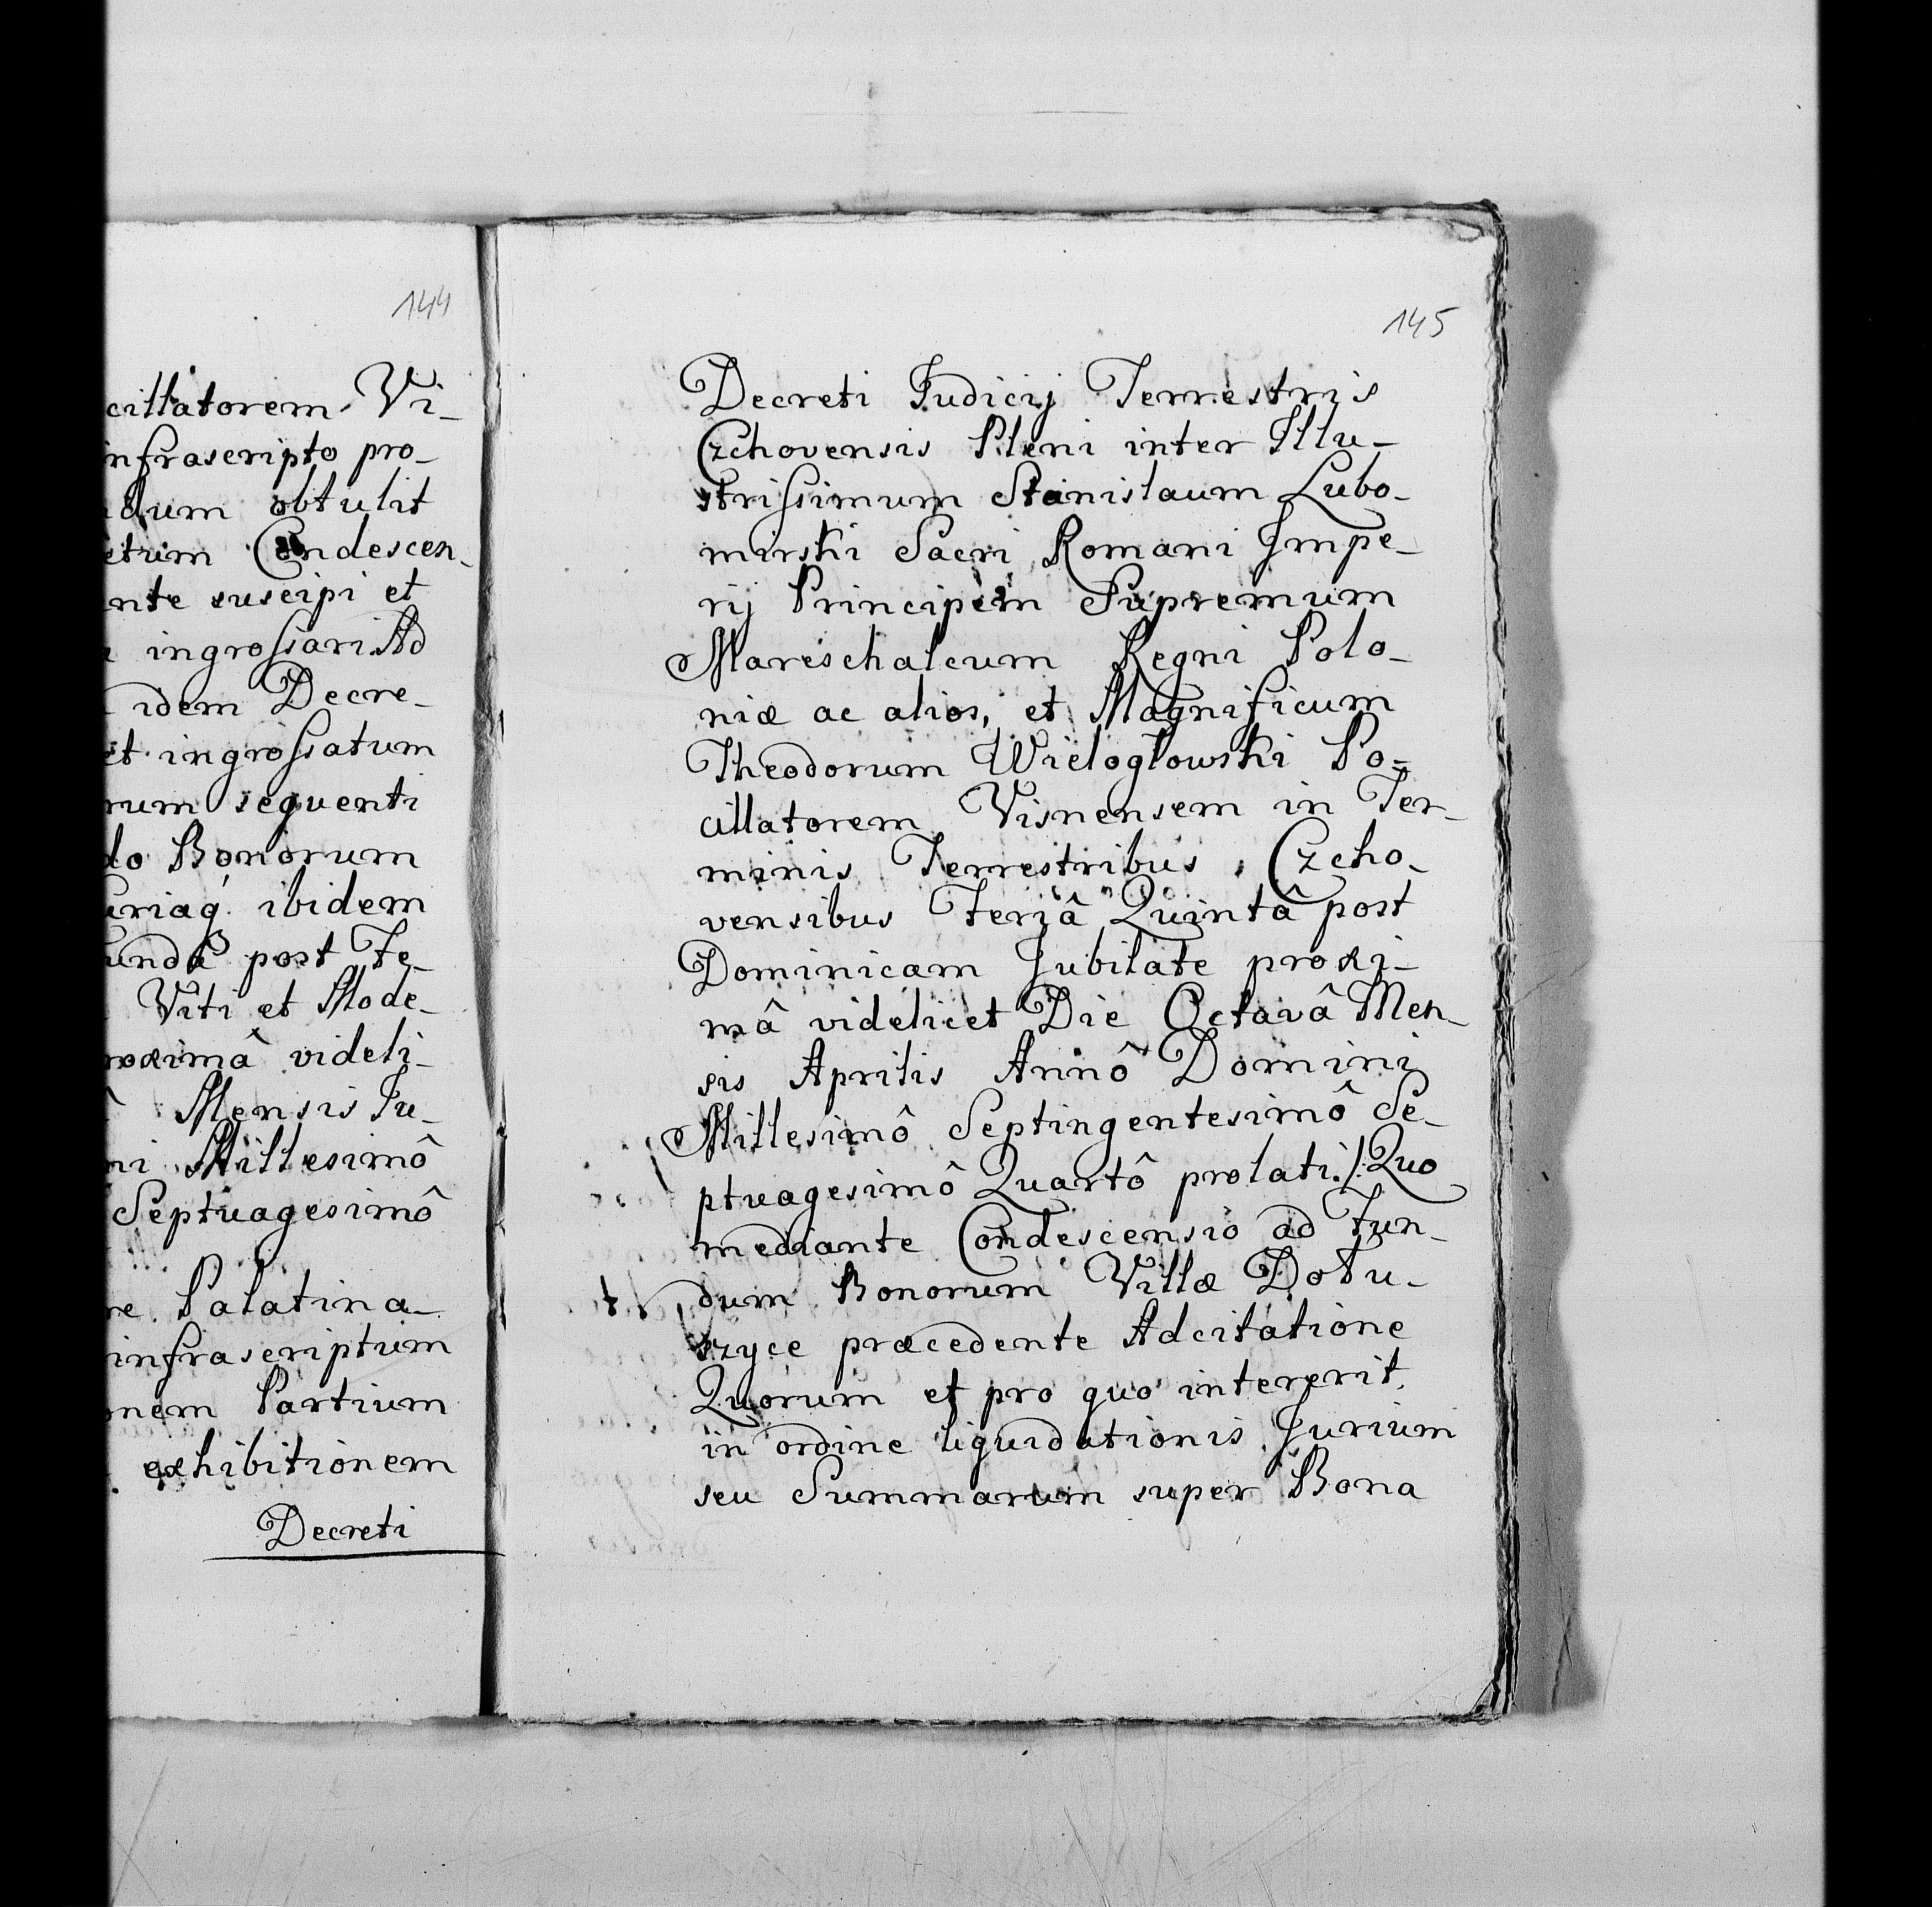 144
cillatorem Vi-
infrascripto pro-
dum obtulit
etum Condescen-
ente suscipi et
ingrossari. Ad
idem Decre-
et ingrossatum
rum sequenti
do Bonorum
uriaq. ibidem
undâ post Fe-
Viti et Mode-
roximâ videli-
Mensis Ju-
ni Millesimô
Septuagesimô
re Palatina-
infrascriptum
onem Partium
exhibitionem
Decreti
145
Decreti Judicij Terrestris
Czchovensis Pleni inter Illu-
strissimum Stanislaum Lubo-
mirski Sacri Romani Impe-
rij Principem Supremum
Mareschalcum Regni Polo-
niæ ac alios, et Magnificum
Theodorum Wieloglowski Po-
cillatorem Visnensem in Ter-
minis Terrestribus Czcho-
vensibus Feriâ Quintâ post
Dominicam Jubilate proxi-
mâ videlicet Die Octavâ Men-
sis Aprilis Annô Domini
Millesimô Septingentesimô Se-
ptuagesimô Quartô prolati./. Quo
mediante Condescensio ad Fun-
dum Bonorum Villæ Dołu-
szyce præcedente Adcitatione
Quorum et pro quo intererit,
in ordine liquidationis Jurium
seu Summarum super Bona